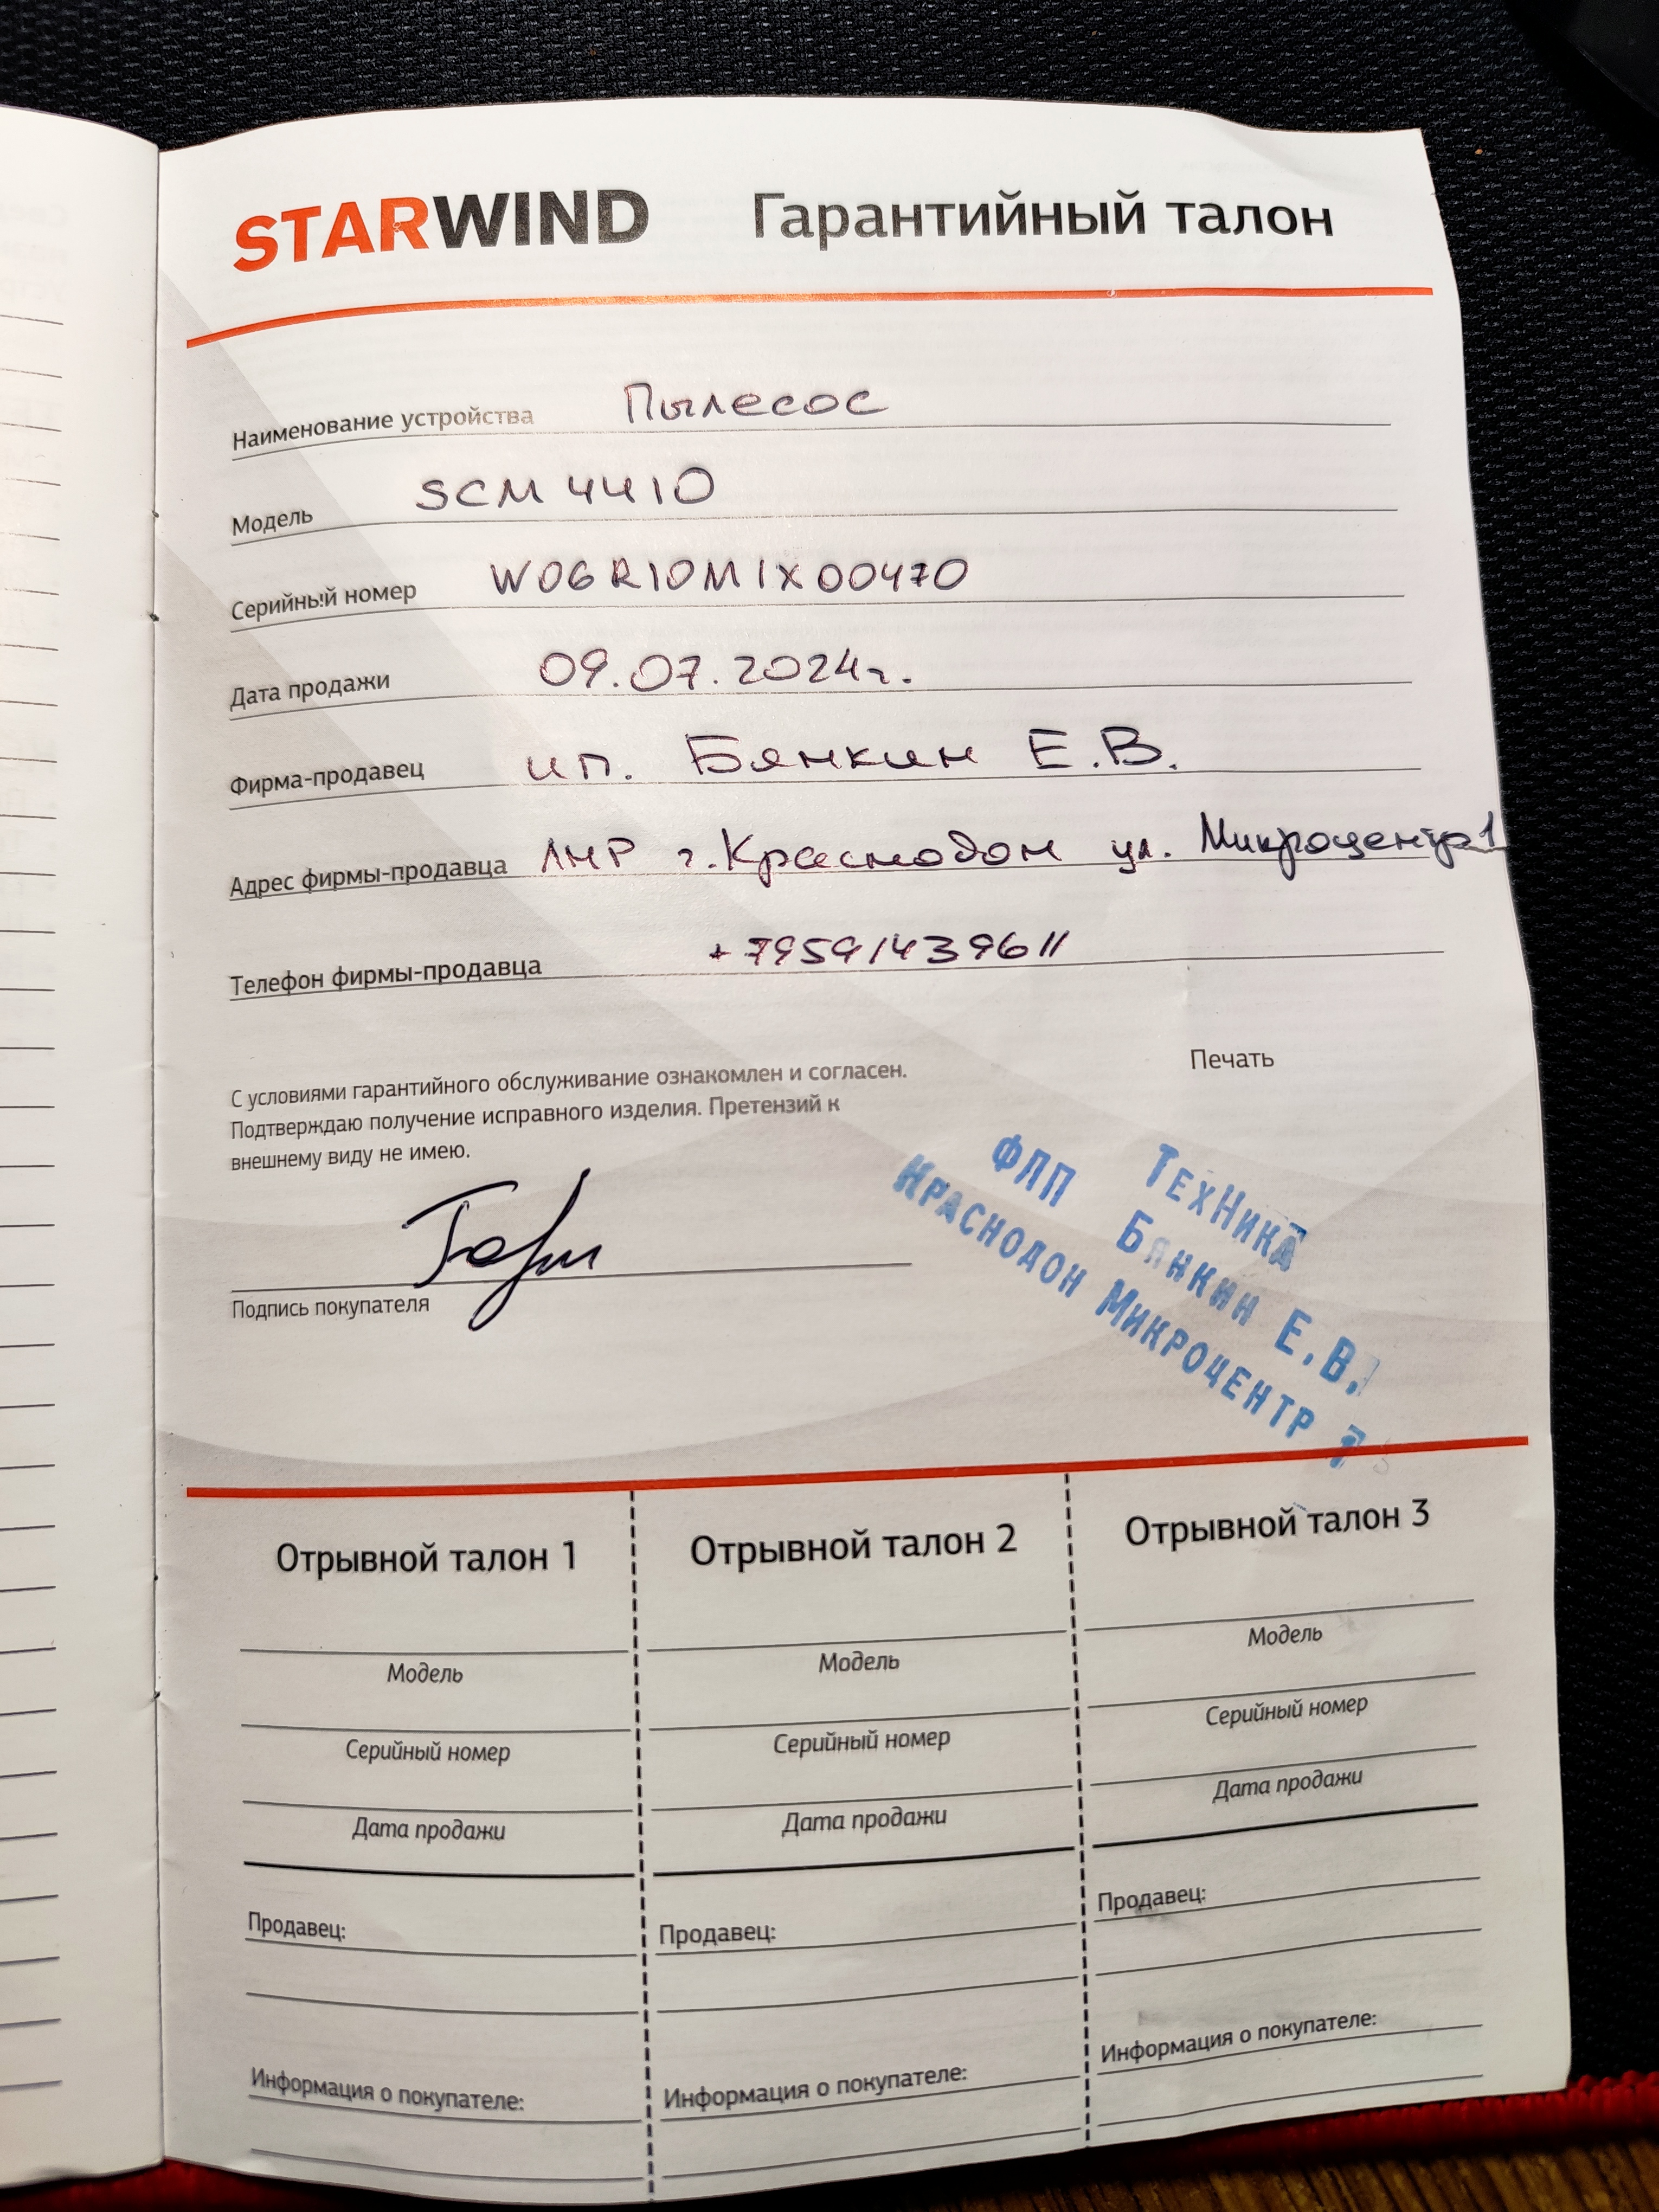 STARWIND Гарантийный талон
Наименование устройства Пылесос
Модель SCM 4410
Серийный номер W06R10M1X00470
Дата продажи 09.07.2024г.
Фирма-продавец ип. Бянкин Е.В.
Адрес фирмы-продавца ЛНР г. Краснодон ул. Микроцентр 1
Телефон фирмы-продавца +79591439611
Печать
С условиями гарантийного обслуживание ознакомлен и согласен.
Подтверждаю получение исправного изделия. Претензий к
внешнему виду не имею.
Подпись покупателя
ТехНика
ФЛП Бянкин Е.В.
Краснодон Микроцентр
Отрывной талон 1
Модель
Серийный номер
Дата продажи
Продавец:
Информация о покупателе:
Отрывной талон 2
Модель
Серийный номер
Дата продажи
Продавец:
Информация о покупателе:
Отрывной талон 3
Модель
Серийный номер
Дата продажи
Продавец:
Информация о покупателе: